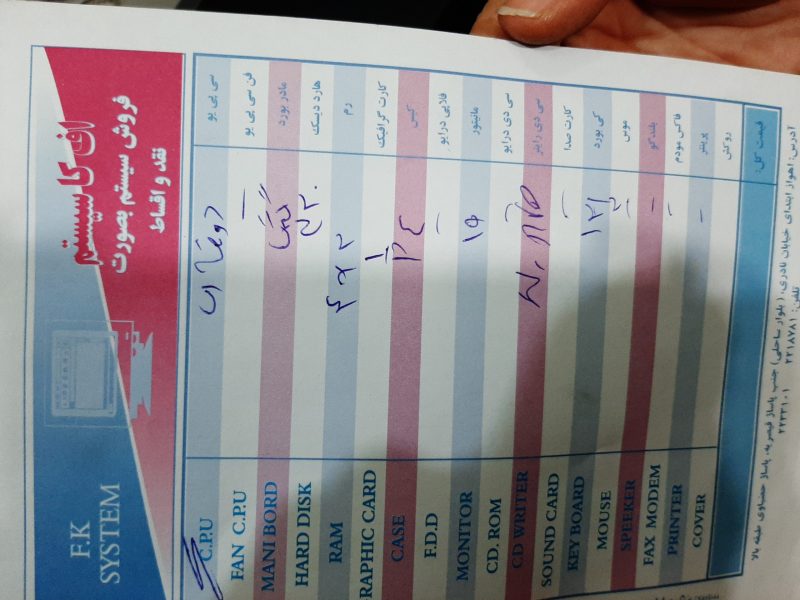 اف کا سیستم
فروش سیستم بصورت
نقد و اقساط
F.K
SYSTEM
C.P.U سی پی یو
FAN C.P.U – فن سی پی یو
MANI BORD گیگا مادر بورد
HARD DISK ۳۲۰ هارد دیسک
RAM ۲ رم
RAPHIC CARD ۱ کارت گرافیک
CASE P4 کیس
F.D.D – فلاپی درایو
MONITOR ۱۹ مانیتور
CD. ROM سی دی درایو
CD WRITER سی دی رایتر
SOUND CARD – کارت صدا
KEY BOARD کی بورد
MOUSE موس
SPEEKER – بلندگو
FAX MODEM – فاکس مودم
PRINTER – پرینتر
COVER روکش
قیمت کل:
آدرس: اهواز ابتدای خیابان نادری، ( بلوار ساحلی) جنب پاساژ قیصریه، پاساژ حصباوی طبقه بالا
تلفن: ۲۲۱۸۷۸۱